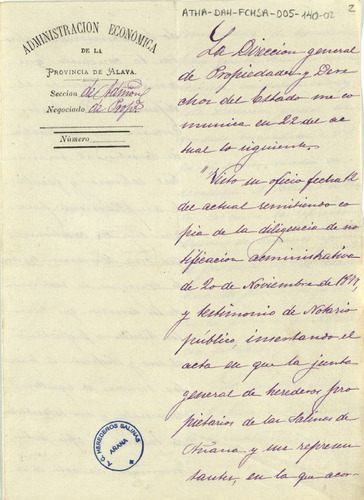 ATHA-DAH-FCHSA-005-140-02
2
ADMINISTRACION ECONÓMICA
DE LA
PROVINCIA DE ALAVA.
Seccion de Admon
Negociado de Propdes
Número
La Direccion general
de Propiedades y Dere
chos del Estado me co
munica en 22 del ac
tual lo siguiente.
"Visto su oficio fecha 12
del actual remitiendo co
pia de la diligencia de no
tificacion administrativa
de 20 de Noviembre de 1877,
y testimonio de Notario
público, insertando el
acta en que la junta
general de herederos pro
pietarios de las Salinas de
Añana y un represen
tante, en la que acor-
A. C. HEREDEROS SALINAS
AÑANA